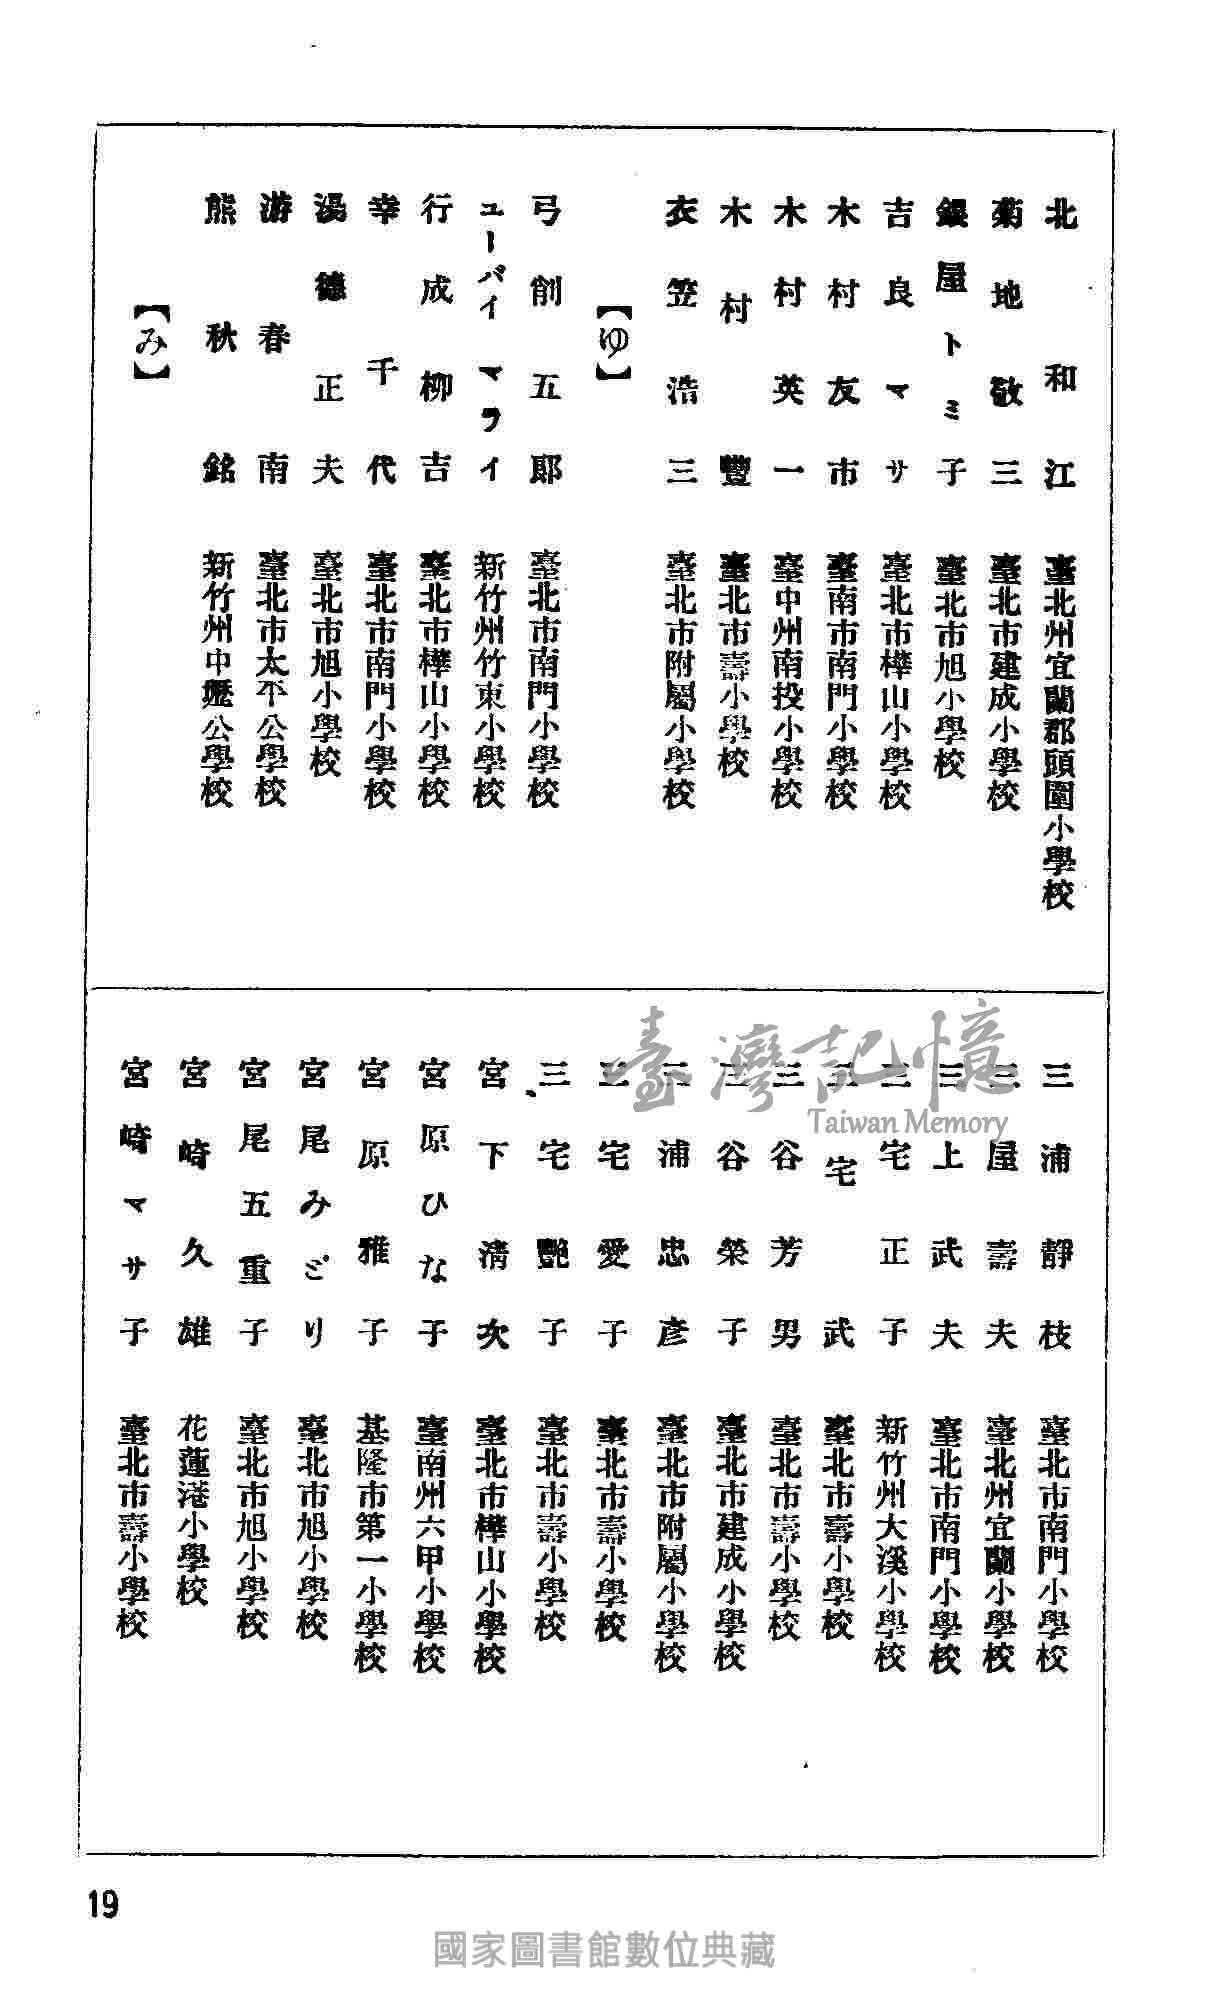 北和江 臺北州宜蘭郡頭圍小學校
菊地敬三 臺北市建成小學校
銀屋トミ子 臺北市旭小學校
吉良マサ 臺北市樺山小學校
木村友市 臺南市南門小學校
木村英一 臺中州南投小學校
木村豐 臺北市壽小學校
衣笠浩三 臺北市附屬小學校
【ゆ】
弓削五郎 臺北市南門小學校
ユーバイマライ 新竹州竹東小學校
行成柳吉 臺北市樺山小學校
幸千代 臺北市南門小學校
湯德正夫 臺北市旭小學校
游春南 臺北市太平公學校
熊秋銘 新竹州中壢公學校
【み】
三浦靜枝 臺北市南門小學校
三屋壽夫 臺北州宜蘭小學校
三上武夫 臺北市南門小學校
三宅正子 新竹州大溪小學校
三宅武 臺北市壽小學校
三谷芳男 臺北市壽小學校
三谷榮子 臺北市建成小學校
三浦忠彥 臺北市附屬小學校
三宅愛子 臺北市壽小學校
三宅艷子 臺北市壽小學校
宮下淸次 臺北市樺山小學校
宮原ひな子 臺南州六甲小學校
宮原雅子 基隆市第一小學校
宮尾みどり 臺北市旭小學校
宮尾五重子 臺北市旭小學校
宮崎久雄 花蓮港小學校
宮崎マサ子 臺北市壽小學校
臺灣記憶
Taiwan Memory
19
國家圖書館數位典藏